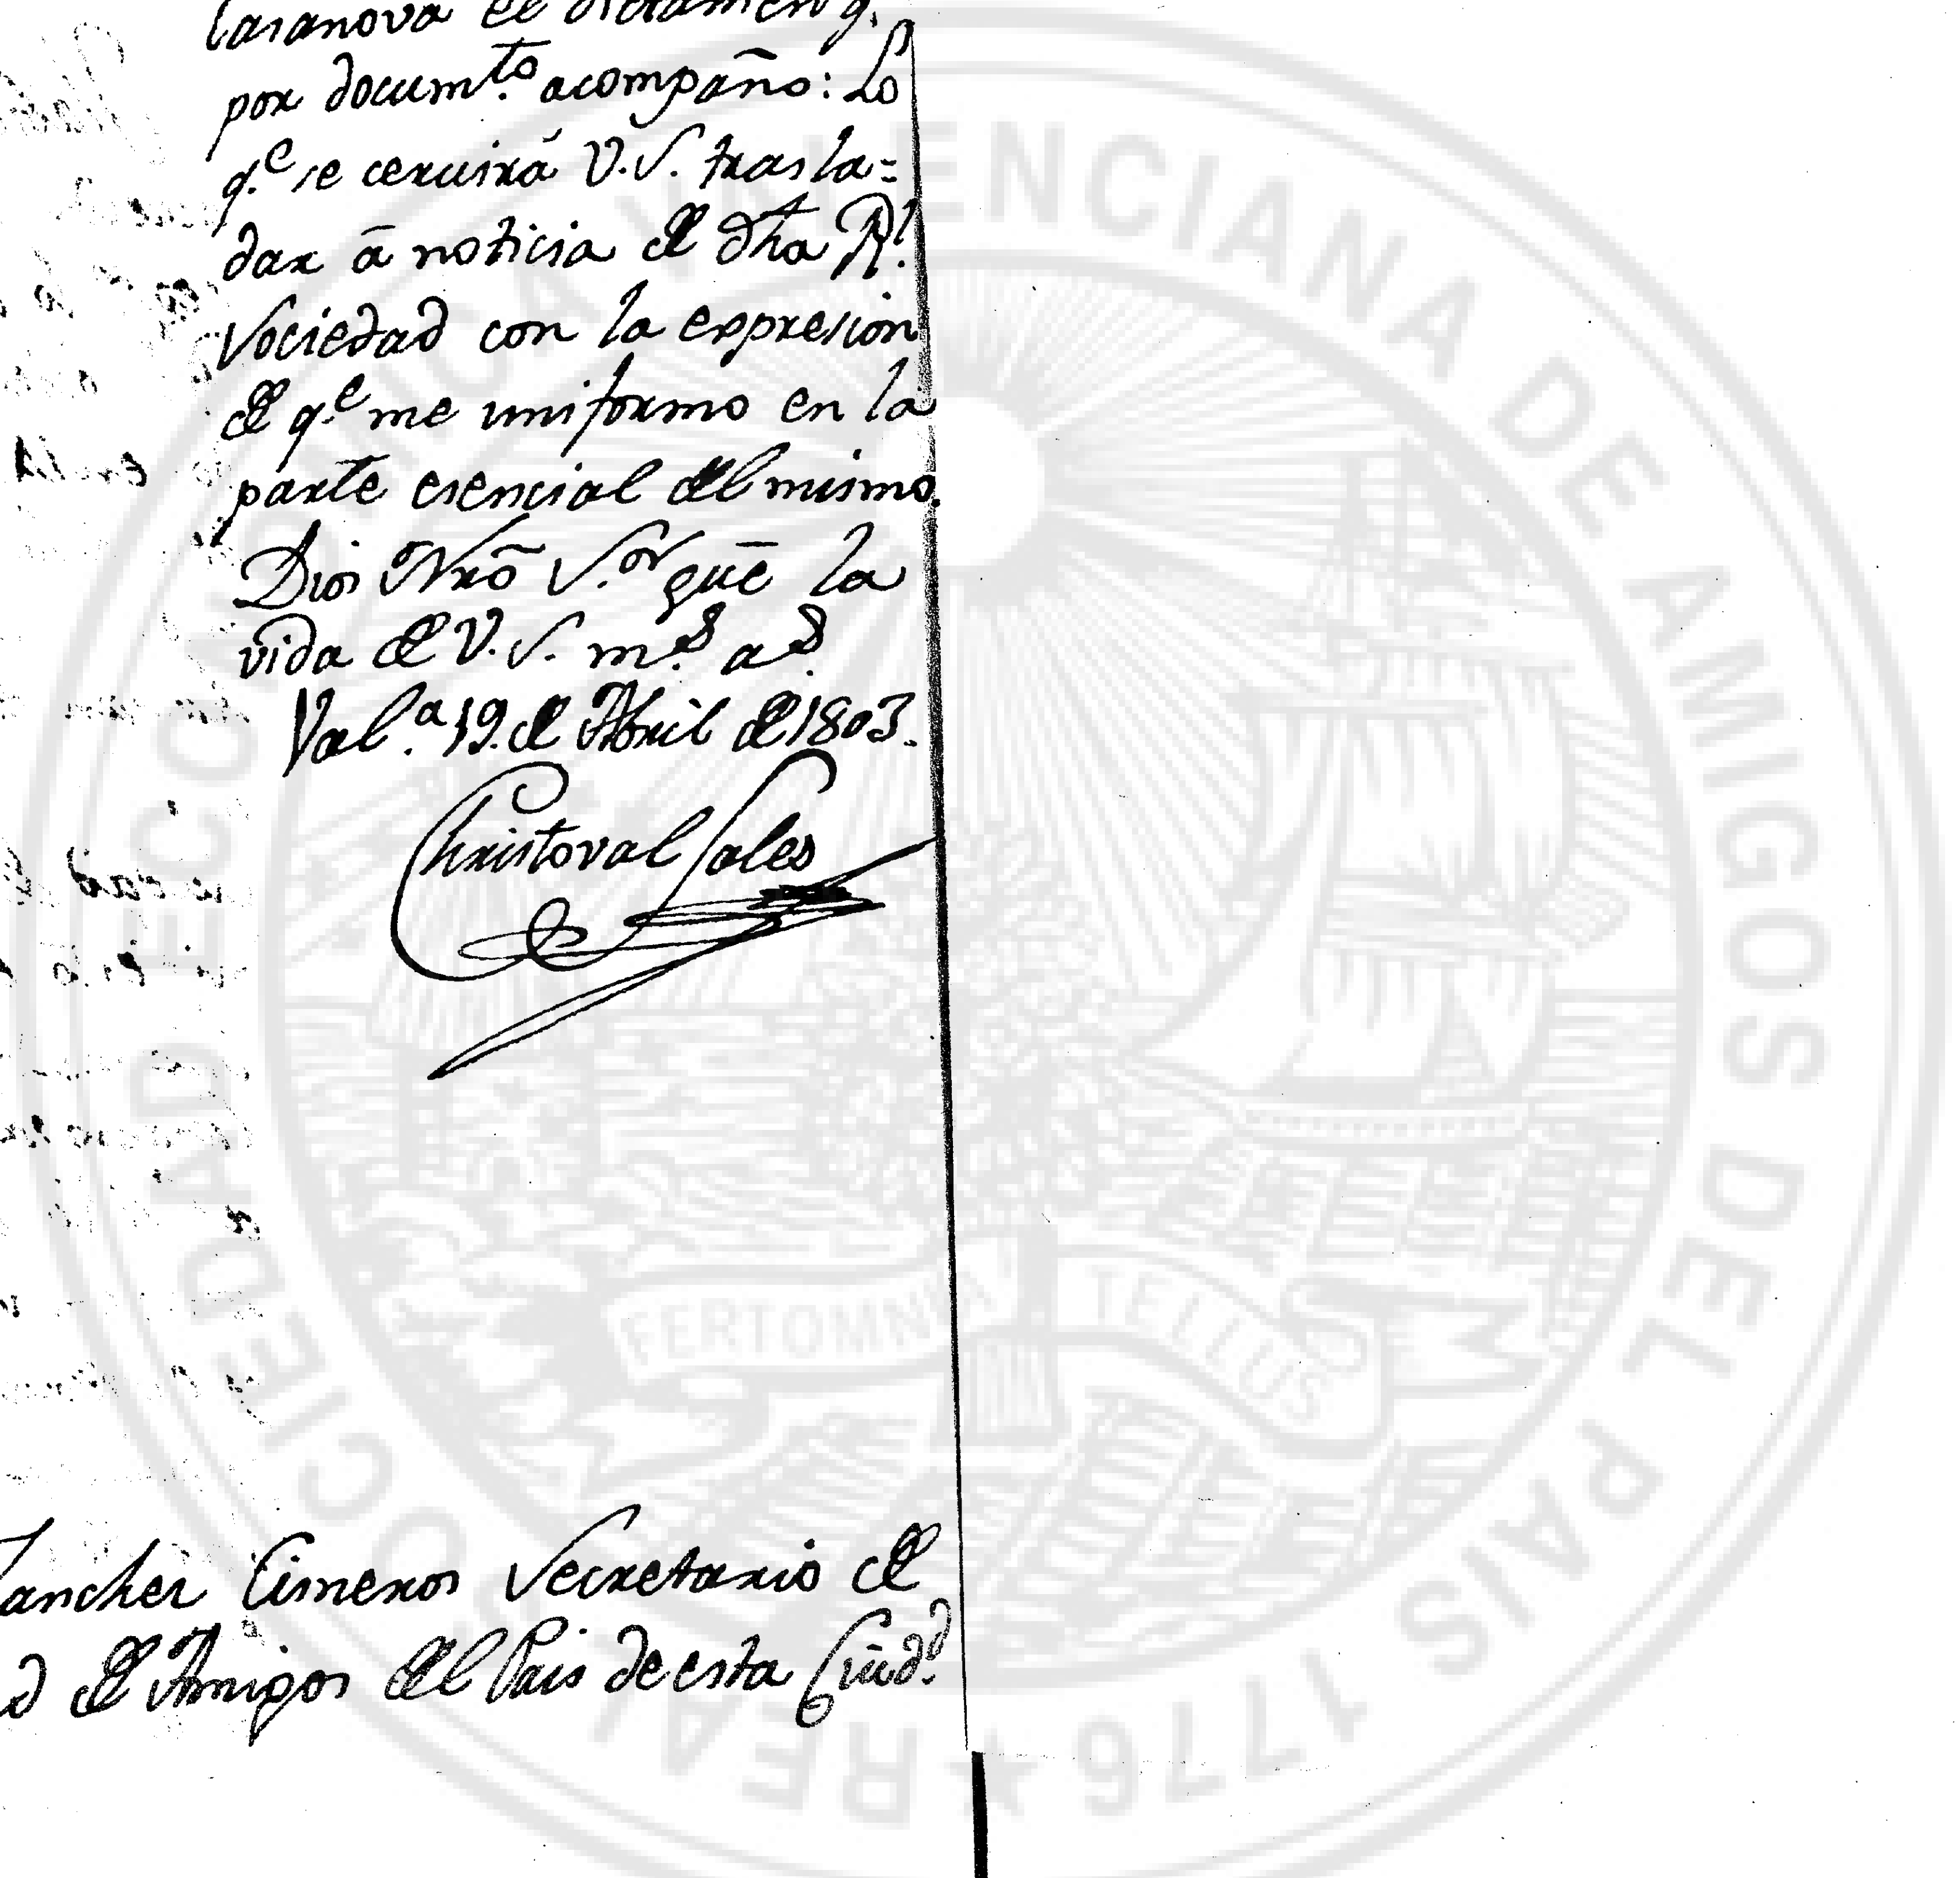 Casanova el dictamen q.
por docum.to acompaño: Lo
q.e se ceruirá V.S. trasla=
dar á noticia de dha R.l
Sociedad con la expresion
de q.e me uniformo en la
parte esencial del mismo.
Dios Nrõ S.or gũe la
vida de V.S. m.s a.s
Val.a 19. de Abril de 1803.
Christoval Sales
Sanchez Cisneros Secretario de
d de Amigos del Pais de esta Ciud.d
REAL SOCIEDAD ECONÓMICA VALENCIANA DE AMIGOS DEL PAIS 1776
FERT OMNIA TELLUS